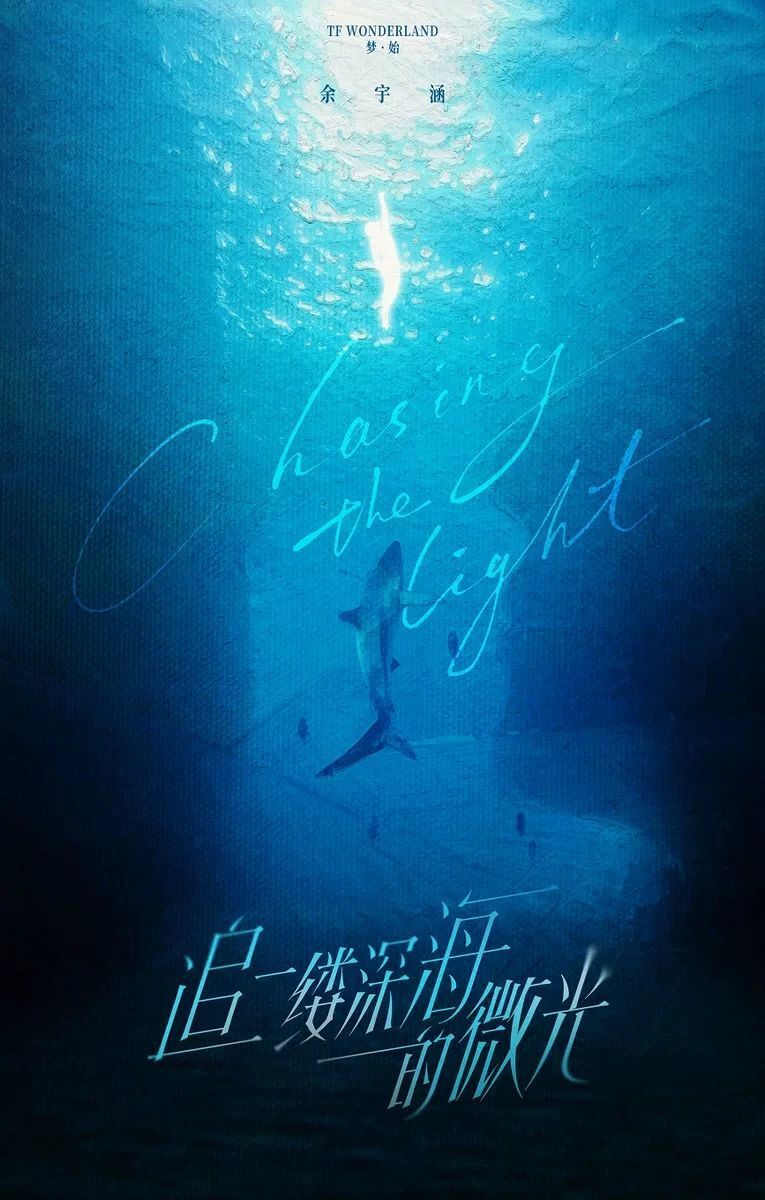 TF WONDERLAND
梦·始
余宇涵
Chasing
the
light
追一缕深海
的微光